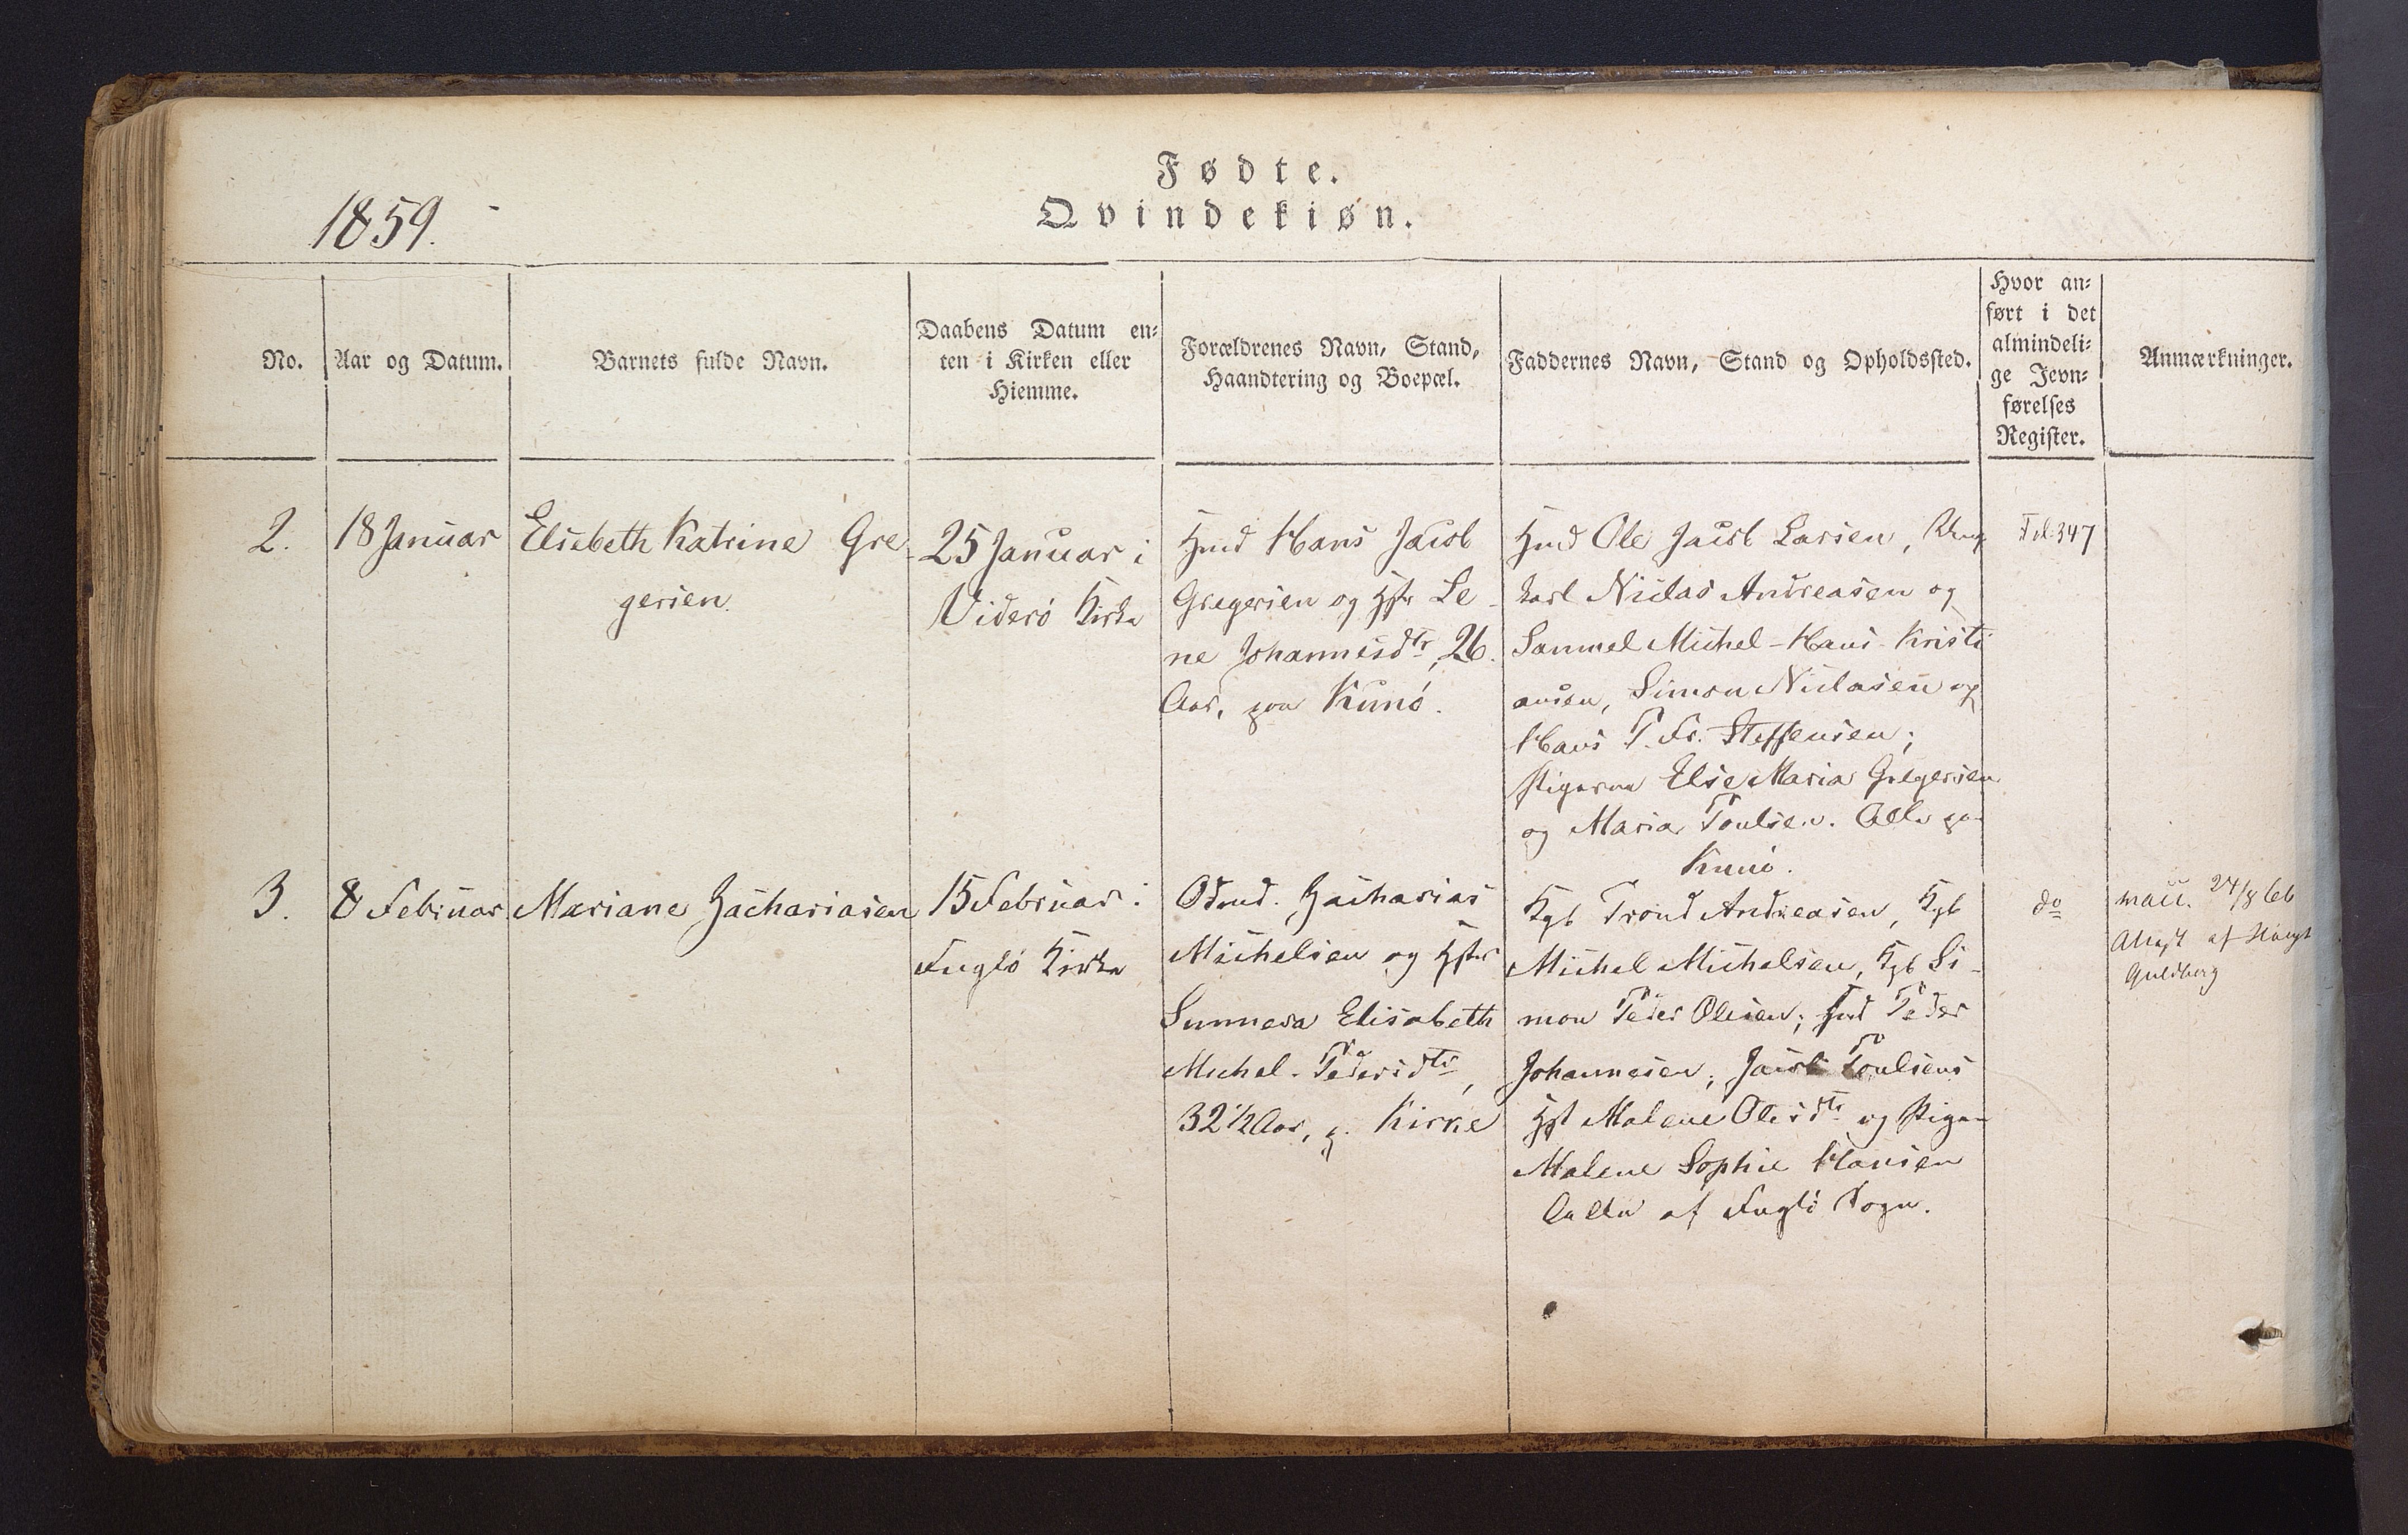 Fødte.
Qvindekiøn.
1859.
No.
Aar og Datum.
Barnets fulde Navn.
Daabens Datum en-
ten i Kirken eller
Hiemme.
Forældrenes Navn, Stand,
Haandtering og Boepæl.
Faddernes Navn, Stand og Opholdssted.
Hvor an-
ført i det
almindeli-
ge Jevn-
førelses
Register.
Anmærkninger.
2.
18 Januar
Elsebeth Katrine Gre
gersen.
25 Januar i
Viderö Kirke
Hmd Hans Jacob
Gregersen og Hstr Le-
ne Johannesdtr, 26.
Aar, paa Kunö.
Hmd Ole Jacob Larsen, Ung
karl Niclas Andreasen og
Sammel Michel - Hans Kristi
ansen, Simon Niclasen og
Hans P. Fr. Steffensen;
Pigerne Else Maria Gregersen
og Maria Poulsen. Alle paa
Kunö.
Fol 347
3.
8 Februar
Mariane Zachariasen
15 Februar i
Fuglö Kirke
Odmd. Zacharias
Michelsen og Hstr
Sunneva Elisabeth
Michel-Pedersdtr,
32 1/2 Aar, p. Kirke
Kgb Trond Andreasen, Kgb
Michel Michelsen, Kgb Si-
mon Peder Olesen; Peder
Johannesen; Jacob Poulsens
Hst Malene Olesdtr og Pigen
Malene Sophie Hansen
Alle af Fuglö Sogn.
do
vacc. 24/8 66
Attest af
Guldberg